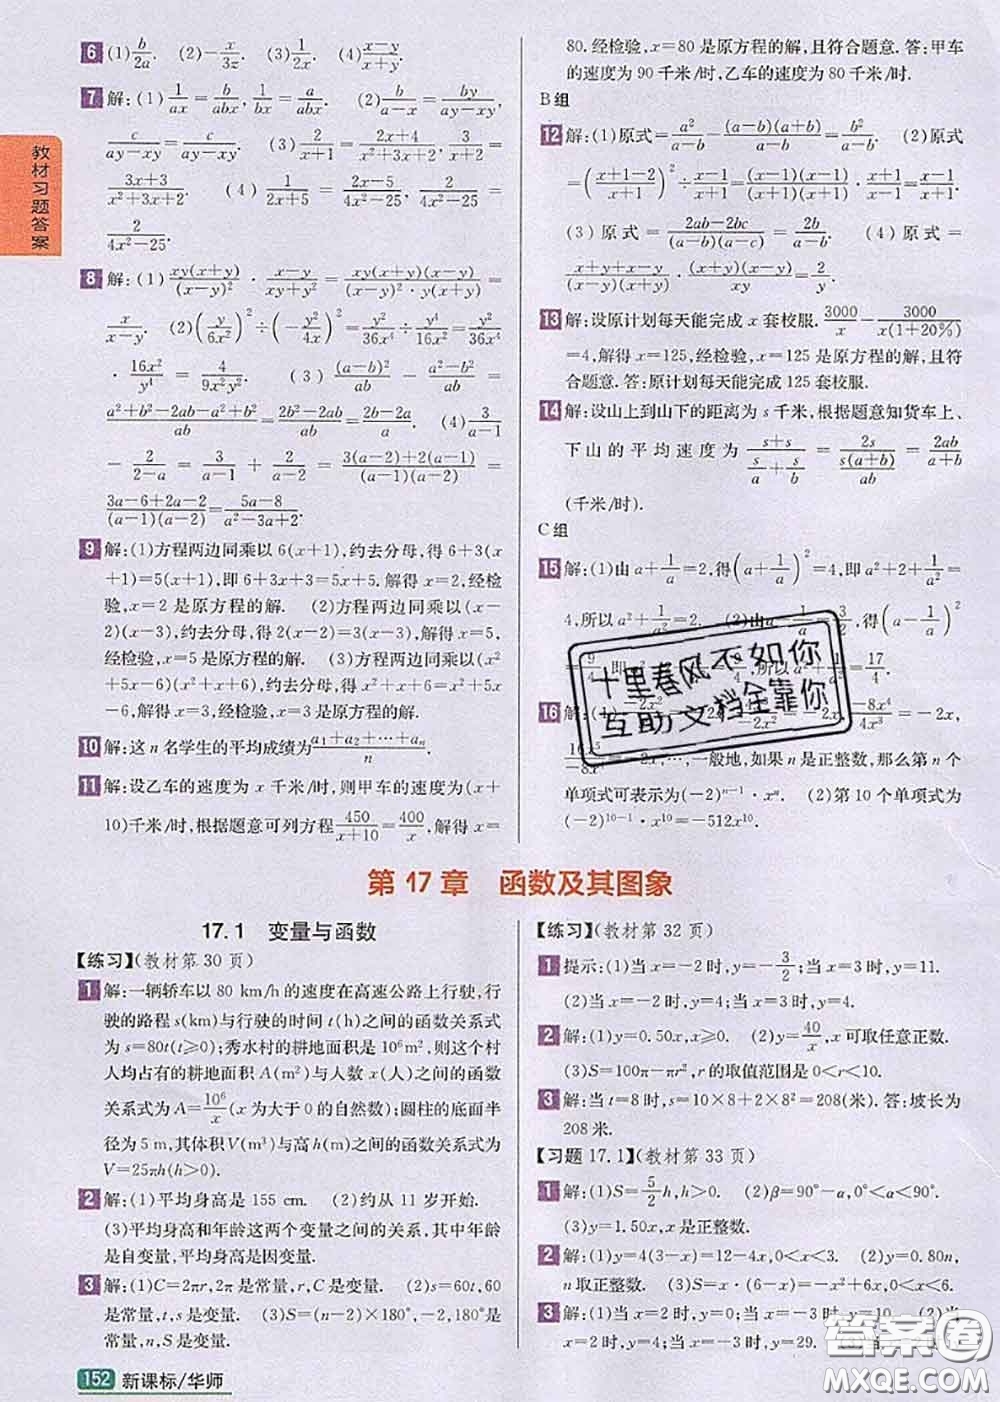 教材习题答案
6 (1) b/2a. (2) -x/3z. (3) 1/2x. (4) (x-y)/(x+y).
7 解:(1) 1/ax = b/abx, 1/bx = a/abx. (2) b/(a-x) = by/(ay-xy),
c/(ay-xy) = c/(ay-xy). (3) 2/(x+1) = (2x+4)/(x²+3x+2), 3/(x+2) =
(3x+3)/(x²+3x+2). (4) 1/(2x+5) = (2x-5)/(4x²-25), 2/(4x²-25) =
2/(4x²-25).
8 解:(1) xy(x+y)/(x-y)² · (x-y)/(xy+y²) = xy(x+y)(x-y)/((x-y)²·y(x+y)) =
x/(x-y). (2) (y/6x²)² ÷ (-y²/4x)² = y²/36x⁴ ÷ y⁴/16x² = y²/36x⁴
· 16x²/y⁴ = 4/9x²y². (3) (a-b)²/ab - (a²-b²)/ab =
(a²+b²-2ab-a²+b²)/ab = (2b²-2ab)/ab = (2b-2a)/a. (4) 3/(a-1)
- 2/(2-a) = 3/(a-1) + 2/(a-2) = (3(a-2)+2(a-1))/((a-1)(a-2)) =
(3a-6+2a-2)/((a-1)(a-2)) = (5a-8)/(a²-3a+2).
9 解:(1)方程两边同乘以 6(x+1),约去分母,得 6+3(x
+1)=5(x+1),即 6+3x+3=5x+5.解得 x=2,经检
验,x=2 是原方程的解. (2)方程两边同乘以(x-
2)(x-3),约去分母,得 2(x-2)=3(x-3),解得 x=5,
经检验,x=5 是原方程的解. (3)方程两边同乘以(x²+
5x-6)(x²+x+6),约去分母,得 x²+5x+6=x²+x
-6,解得 x=3,经检验,x=3 是原方程的解.
10 解:这 n 名学生的平均成绩为 (a₁+a₂+…+aₙ)/n.
11 解:设乙车的速度为 x 千米/时,则甲车的速度为(x+
10)千米/时,根据题意可列方程 450/(x+10) = 400/x,解得 x=
80.经检验,x=80 是原方程的解,且符合题意.答:甲车
的速度为 90 千米/时,乙车的速度为 80 千米/时.
B 组
12 解:(1)原式= a²/(a-b) - (a-b)(a+b)/(a-b) = b²/(a-b). (2)原式
= ((x+1-2)/(x+1))² ÷ (x-1)/(x+1) = (x-1)(x-1)/((x+1)(x+1)) · (x+1)/(x-1) = (x-1)/(x+1).
(3)原式= (2ab-2bc)/((a-b)(a-c)) = 2b/(a-b). (4)原式=
(x+y+x-y)/((x+y)(x-y)) · (x+y)(x-y)/xy = 2/y.
13 解:设原计划每天能完成 x 套校服. 3000/x - 3000/(x(1+20%))
=4,解得 x=125,经检验,x=125 是原方程的解,且符
合题意.答:原计划每天能完成 125 套校服.
14 解:设山上到山下的距离为 s 千米,根据题意知货车上、
下山的平均速度为 (s+s)/(s/a+s/b) = 2s/(s(a+b)/ab) = 2ab/(a+b)
(千米/时).
C 组
15 解:(1)由 a+1/a=2,得(a+1/a)²=4,即 a²+2+1/a²=
4,所以 a²+1/a²=2. (2)由 a-1/a=3/2,得(a-1/a)²
=9/4,即 所以 a²+1/a²=17/4.
16 解:(1) -8x⁴/4x³=-2x,
16x⁵/-8x⁴=-2x,…,一般地,如果 n 是正整数,那么第 n 个
单项式可表示为(-2)ⁿ⁻¹·xⁿ. (2)第 10 个单项式为
(-2)¹⁰⁻¹·x¹⁰=-512x¹⁰.
十里春风不如你
互助文档全靠你
第 17 章 函数及其图象
17.1 变量与函数
【练习】(教材第 30 页)
1 解:一辆轿车以 80 km/h 的速度在高速公路上行驶,行
驶的路程 s(km)与行驶的时间 t(h)之间的函数关系式
为 s=80t(t≥0);秀水村的耕地面积是 10⁶m²,则这个村
人均占有的耕地面积 A(m²)与人数 x(人)之间的函数
关系式为 A=10⁶/x(x 为大于 0 的自然数);圆柱的底面半
径为 5 m,其体积 V(m³)与高 h(m)之间的函数关系式为
V=25πh(h>0).
2 解:(1)平均身高是 155 cm. (2)约从 11 岁开始.
(3)平均身高和年龄这两个变量之间的关系,其中年龄
是自变量,平均身高是因变量.
3 解:(1)C=2πr,2π 是常量,r,C 是变量. (2)s=60t,60
是常量,t,s 是变量. (3)S=(n-2)×180°,-2,180°是
常量,n,S 是变量.
【练习】(教材第 32 页)
1 提示:(1)当 x=-2 时,y=-3/2;当 x=3 时,y=11.
(2)当 x=-2 时,y=4;当 x=3 时,y=4.
2 解:(1)y=0.50x,x≥0. (2)y=40/x,x 可取任意正数.
(3)S=100π-πr²,r 的取值范围是 0<r<10.
3 解:当 t=8 时,s=10×8+2×8²=208(米).答:坡长为
208 米.
【习题 17.1】(教材第 33 页)
1 解:(1)S=5/2 h,h>0. (2)β=90°-α,0°<α<90°.
(3)y=1.50x,x 是正整数.
2 解:(1)y=4(3-x)=12-4x,0<x<3. (2)y=0.80n,
n 取正整数. (3)S=x·(6-x)=-x²+6x,0<x<6.
3 解:(1)当 x=2 时,y=0;当 x=-3 时,y=10. (2)当
x=2 时,y=4;当 x=-3 时,y=29.
152 新课标/华师
答案圈
MXQE.COM